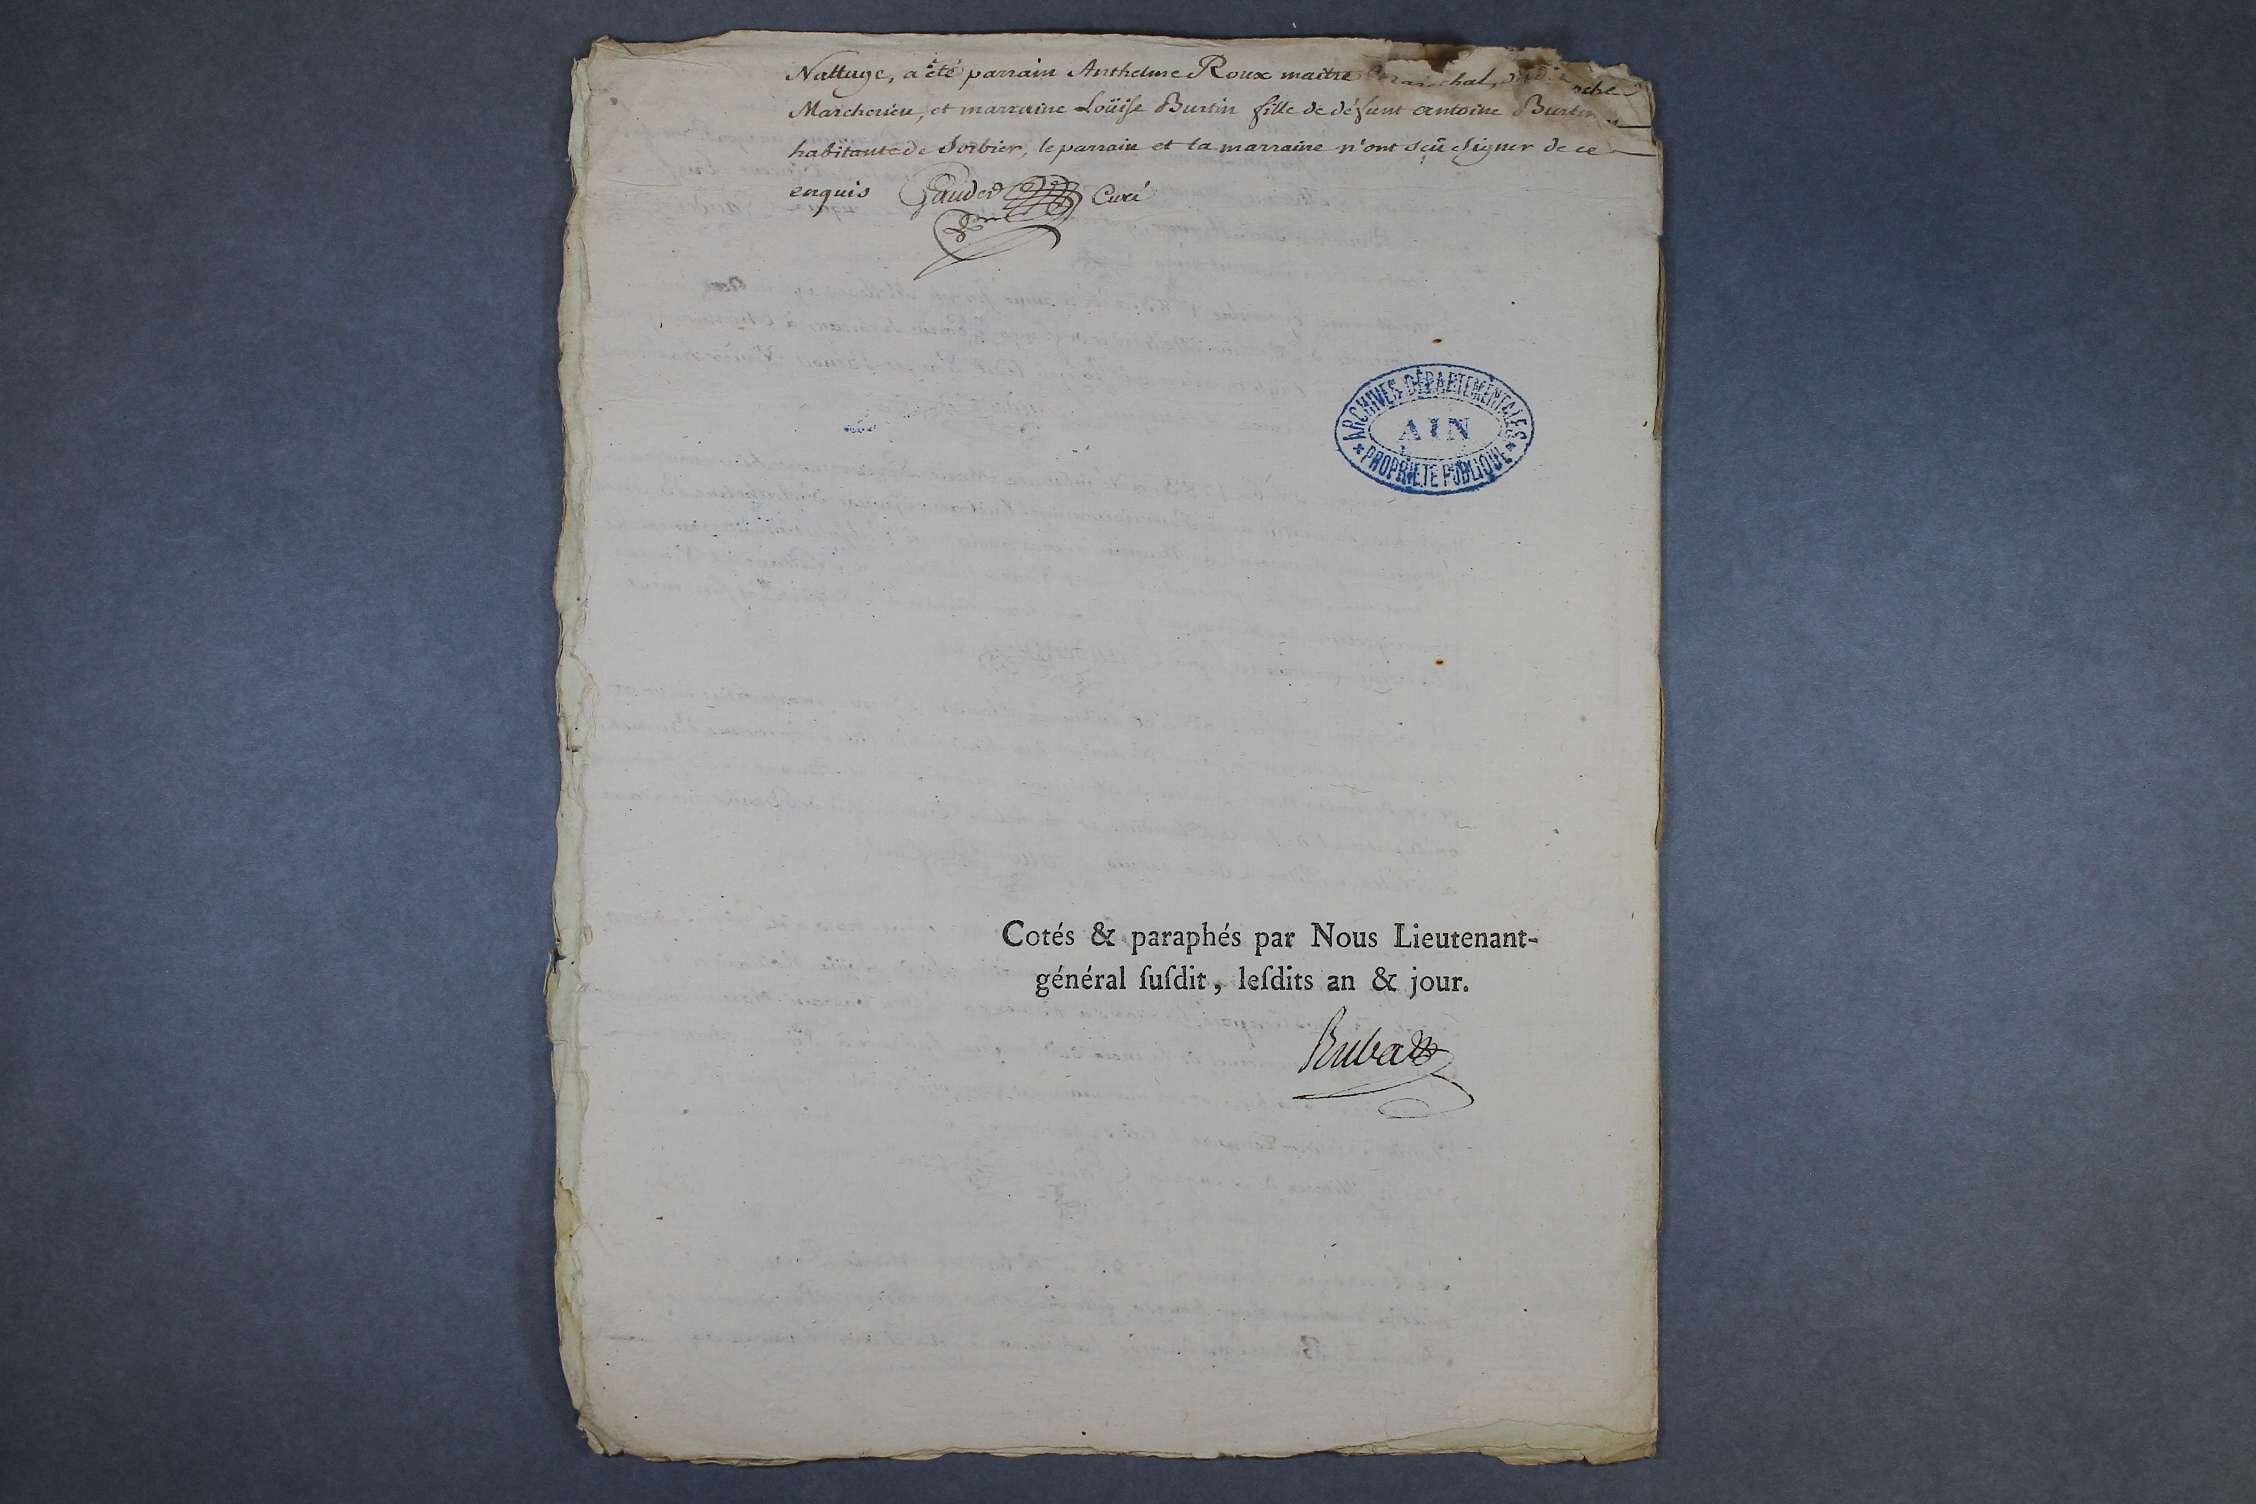 Nattage, a été parrain Anthelme Roux maitre
Marcherieu, et marraine Loüise Burtin fille de défunt antoine Burtin
habitante de Sorbier, le parrain et la marraine n'ont sçû signer de ce
enquis Curé
ARCHIVES DÉPARTEMENTALES
AIN
PROPRIÉTÉ PUBLIQUE
Cotés & paraphés par Nous Lieutenant-
général ſuſdit, leſdits an & jour.